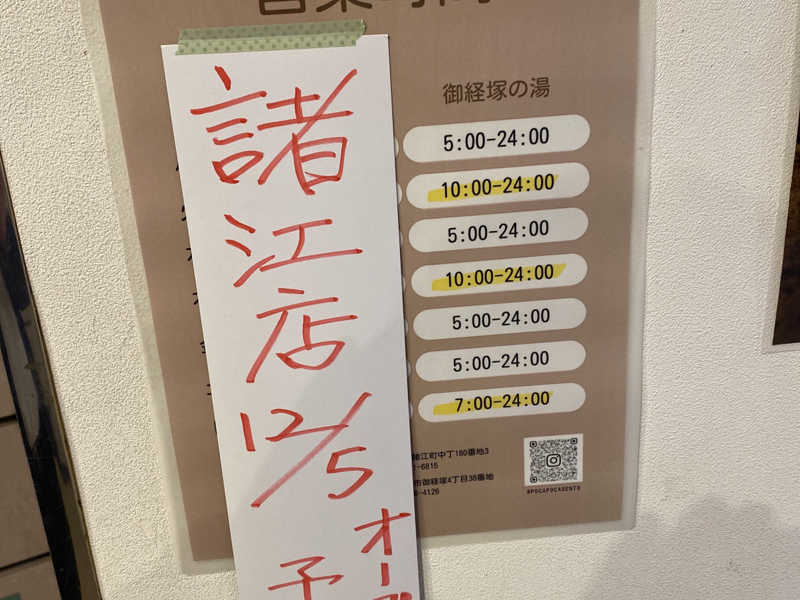 諸江店
12/5
オープ
予
御経塚の湯
5:00-24:00
10:00-24:00
5:00-24:00
10:00-24:00
5:00-24:00
5:00-24:00
7:00-24:00
諸江町中丁180番地3
-6815
市御経塚4丁目38番地
-4126
#POCAPOCASENTO